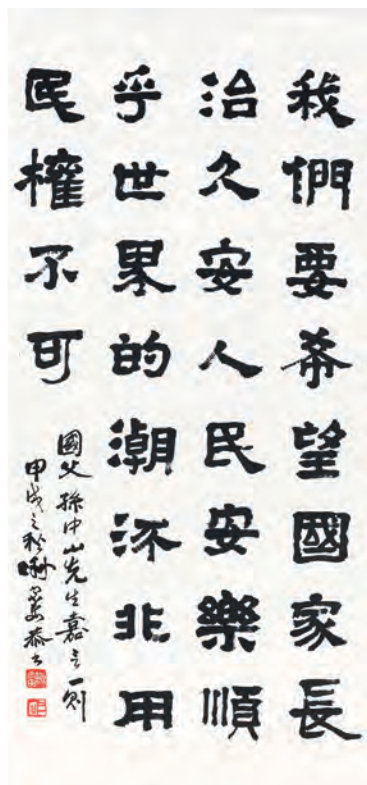 我們要希望國家長
治久安人民安樂順
乎世界的潮流非用
民權不可
國父孫中山先生嘉言一則
甲戌之秋